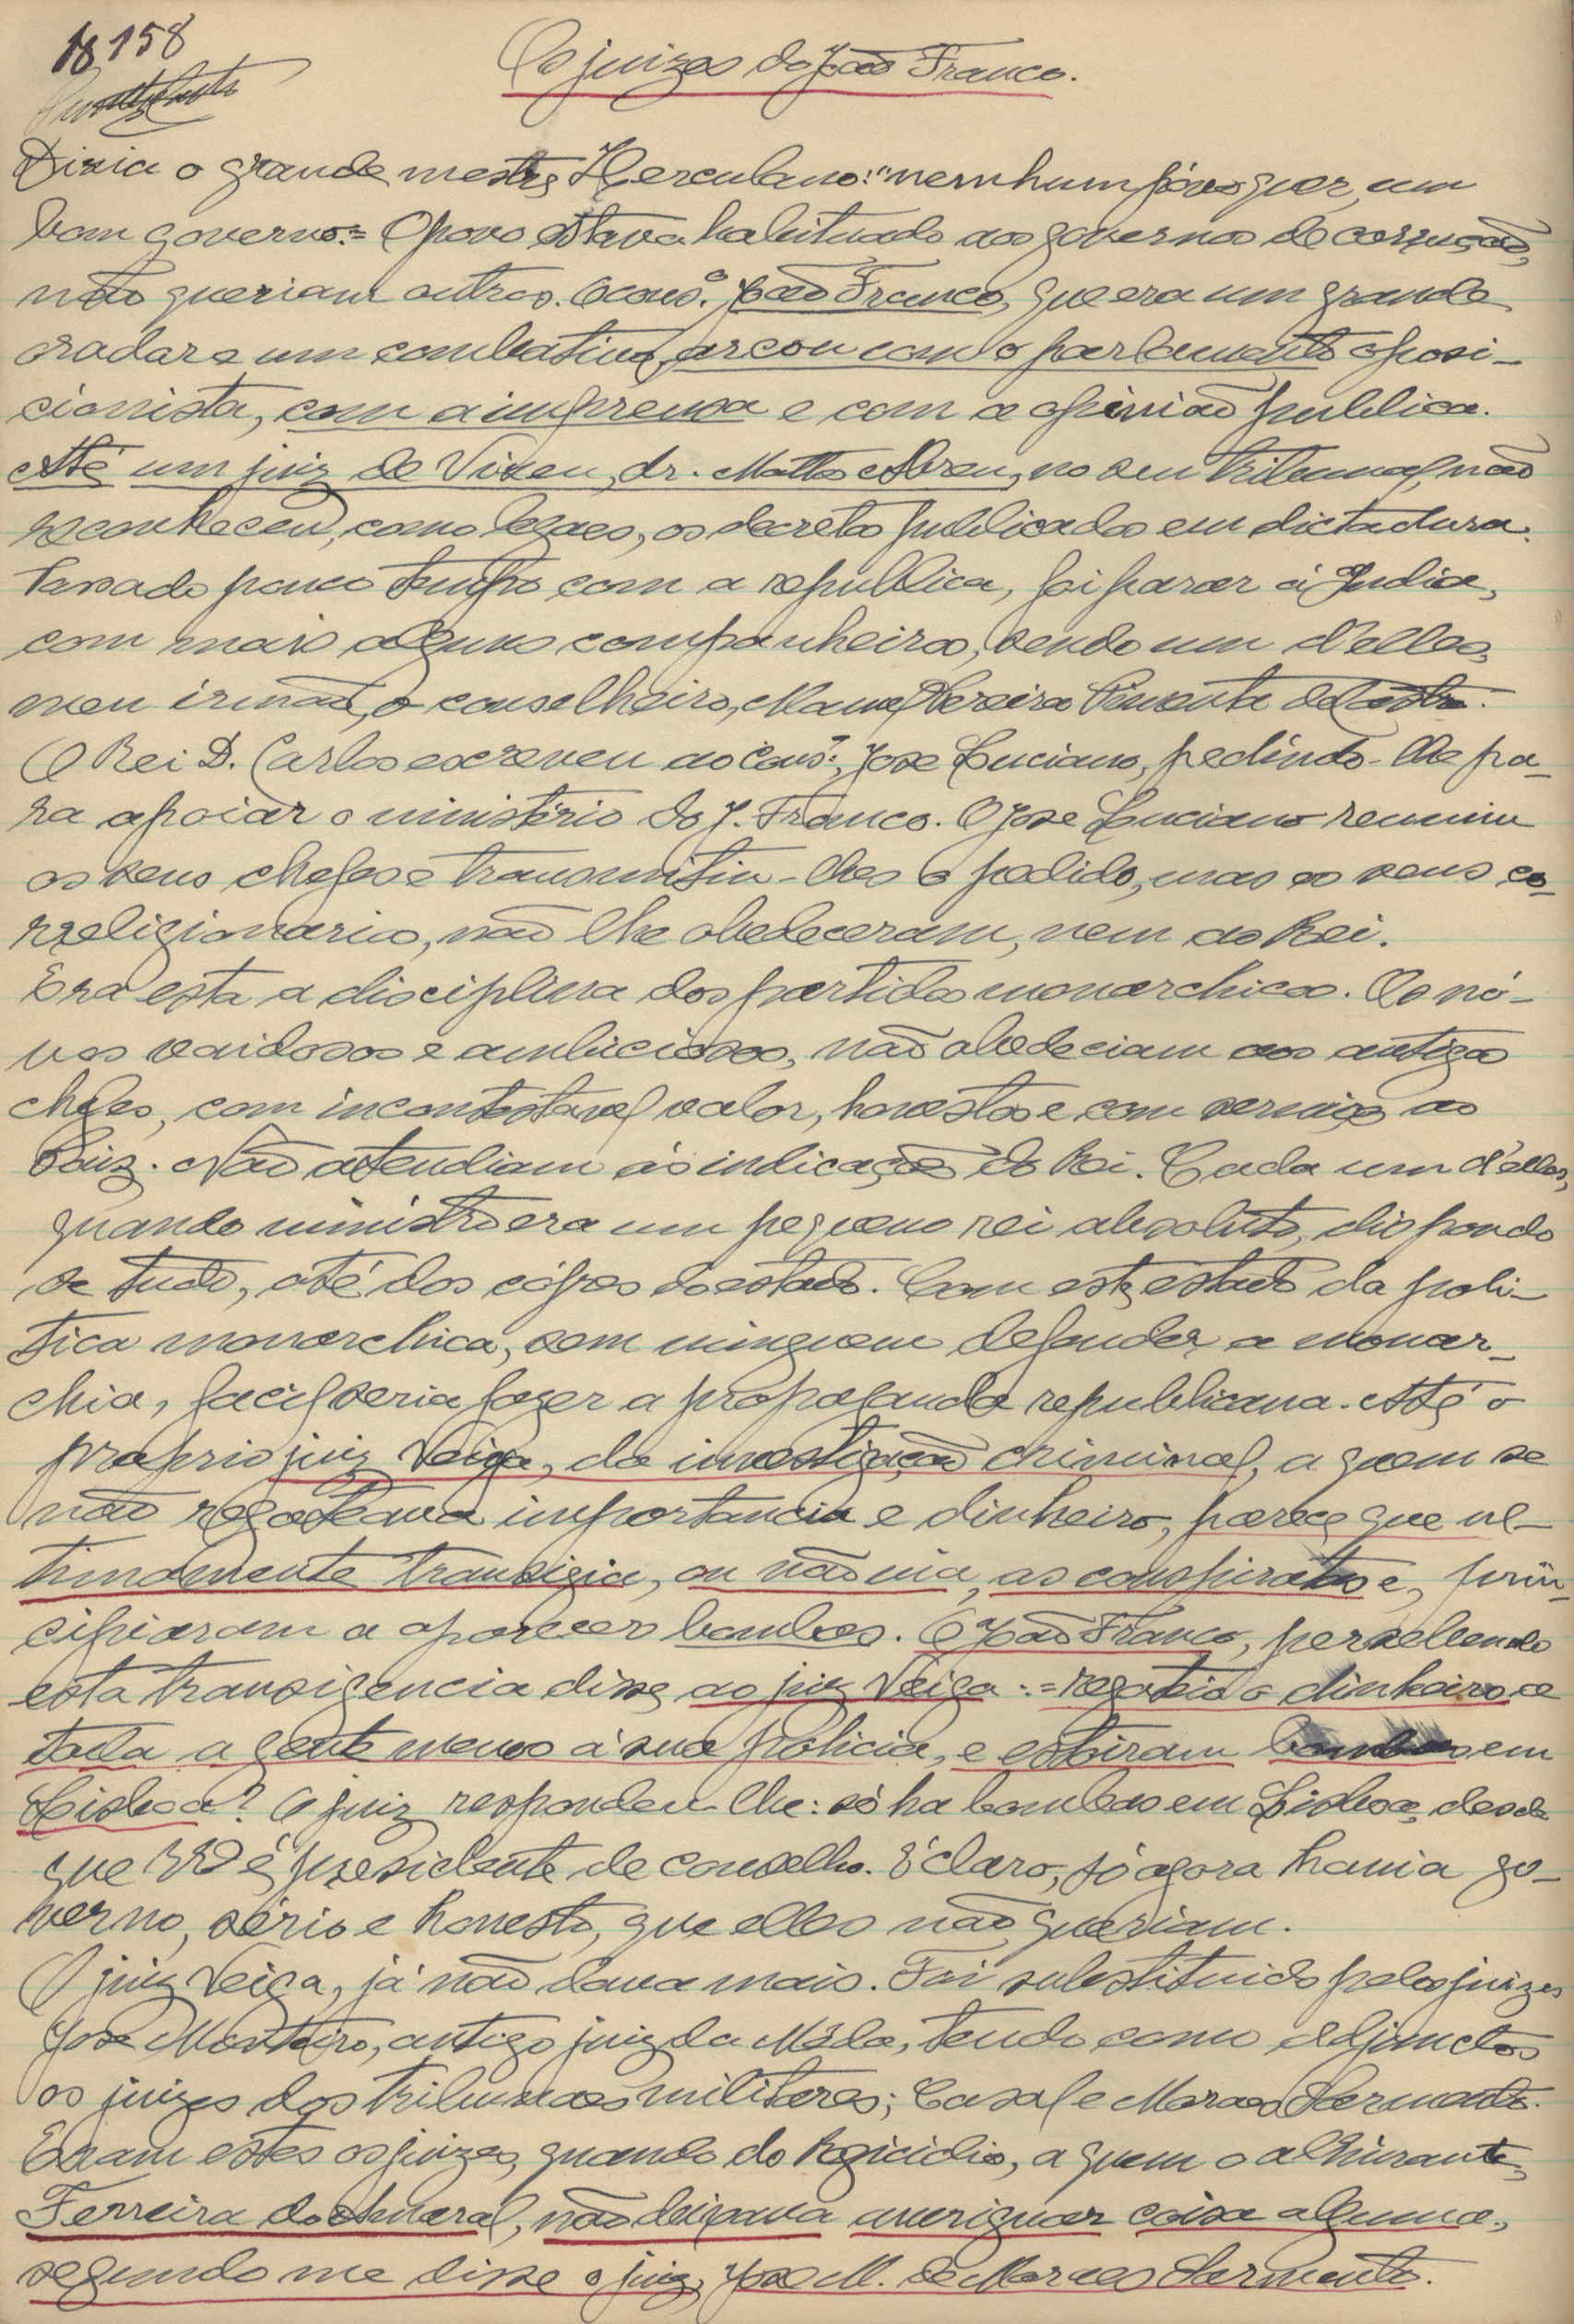 18 158
Os juizes do João Franco.
Dizia o grande mestre Herculano: "nemnhum pôvo quer, um
bom governo.= O povo estava habituado aos governos de corrução,
não queriam outros. O cons.º João Franco, que era um grande
orador e um combativo, arcou com o parlamento oposi-
cionista, com a imprensa e com a opinião publica.
Até um juiz de Vizeu, dr. Mattos Abreu, no seu tribunal, não
reconheceu, como legaes, os decretos publicados em dictadura.
Passado pouco tempo com a republica, foi parar á India,
com mais alguns companheiros, sendo um d'elles,
meu irmão, o conselheiro, Manoel Pereira Pimenta de Castro.
O Rei D. Carlos escreveu ao cons.º, Jose Luciano, pedindo-lhe pa-
ra apoiar o ministério do J. Franco. O Jose Luciano reuniu
os seus chefes e transmitiu-lhes o pedido, mas os seus co-
rreligionarios, não lhe obedeceram, nem ao Rei.
Era esta a disciplina dos partidos monarchicos. Os nó-
vos vaidosos e ambiciosos, não obedeciam aos antigos
chefes, com incontestavel valor, honestos e com serviços ao
Paiz. Não atendiam ás indicações do Rei. Cada um d'elles,
quando ministro era um pequeno rei absoluto, dispondo
de tudo, até dos cófres do estado. Com este estado da poli-
tica monarchica, sem ninguem defender a monar-
chia, facil seria fazer a propaganda republicana. Até o
proprio juiz Veiga, da investigação criminal, a quem se
não regateava importancia e dinheiro, parece que ul-
timamente transigia, ou não via, as conspiratas e, prin-
cipiaram a aparecer bombas. O João Franco, persebendo
esta transigencia disse ao juiz Veiga := regateio o dinheiro a
toda a gente menos á sua policia, e estoiram bombas em
Lisboa? O juiz respondeu-lhe: só ha bombas em Lisboa, desde
que V. Ex.ª é presidente de conselho. É claro, só agora havia go-
verno, sério e honesto, que elles não queriam.
O juiz Veiga, já não dava mais. Foi substituido pelos juizes
Jose Monteiro, antigo juiz da Méda, tendo como adjunctos
os juizes dos tribunaes militares; Casal e Moraes Sarmento.
Eram estes os juizes, quando do Regicidio, a quem o almirante,
Ferreira do Amaral, não deixava averiguar coisa alguma,
segundo me disse o juiz, Jose M. de Moraes Sarmento.